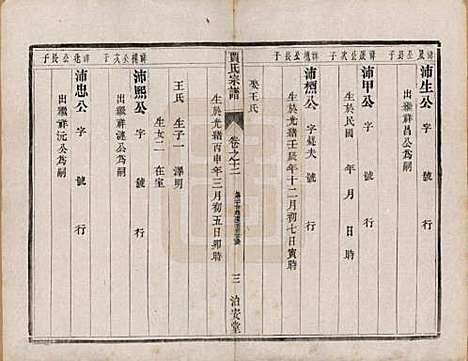 祥孟公長子
沛生公 字 號 行
出繼祥昌公為嗣
祥誠公次子
沛甲公 字 號 行
生於民國 年 月 日 時
祥公長子
沛楷公 字夫 號 行
生於光緒壬辰年十二月初七日寅時
娶王氏
賈氏宗譜
卷之十二
三 治安堂
生於光緒丙申年三月初五日卯時
王氏 生子一 澤明
生女二 在室
祥公次子
沛熙公 字 號 行
出繼祥謎公為嗣
祥公長子
沛忠公 字 號 行
出繼祥沅公為嗣